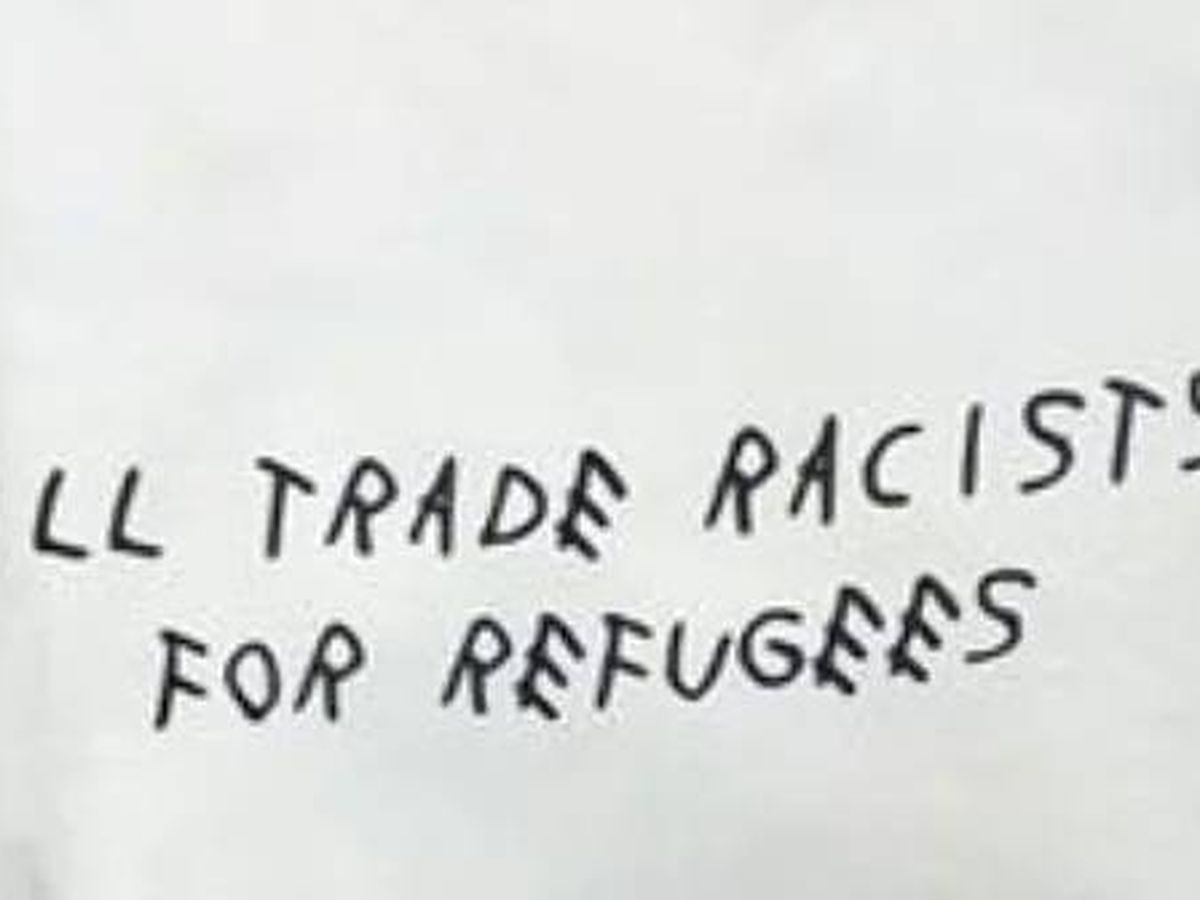 LL TRADE RACISTS
FOR REFUGEES